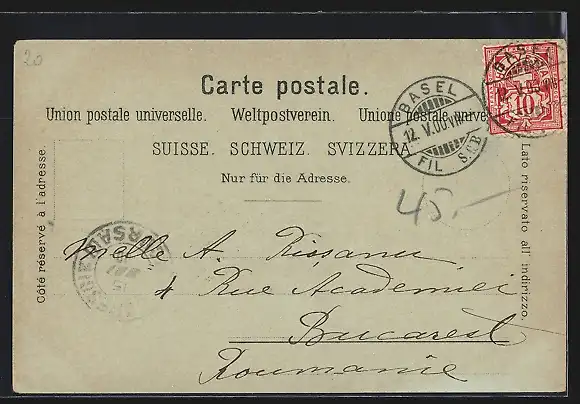 20
Carte postale.
Union postale universelle. Weltpostverein. Unione postale unive
SUISSE. SCHWEIZ. SVIZZERA
Nur für die Adresse.
Côté réservé à l'adresse.
Lato riservato all' indirizzo.
BASEL
12. V. 00. VIII
FIL S.C.B
BASEL
10
45.—
Melle A. Rissanu
4 Rue Academiei
Bucarest
Roumanie